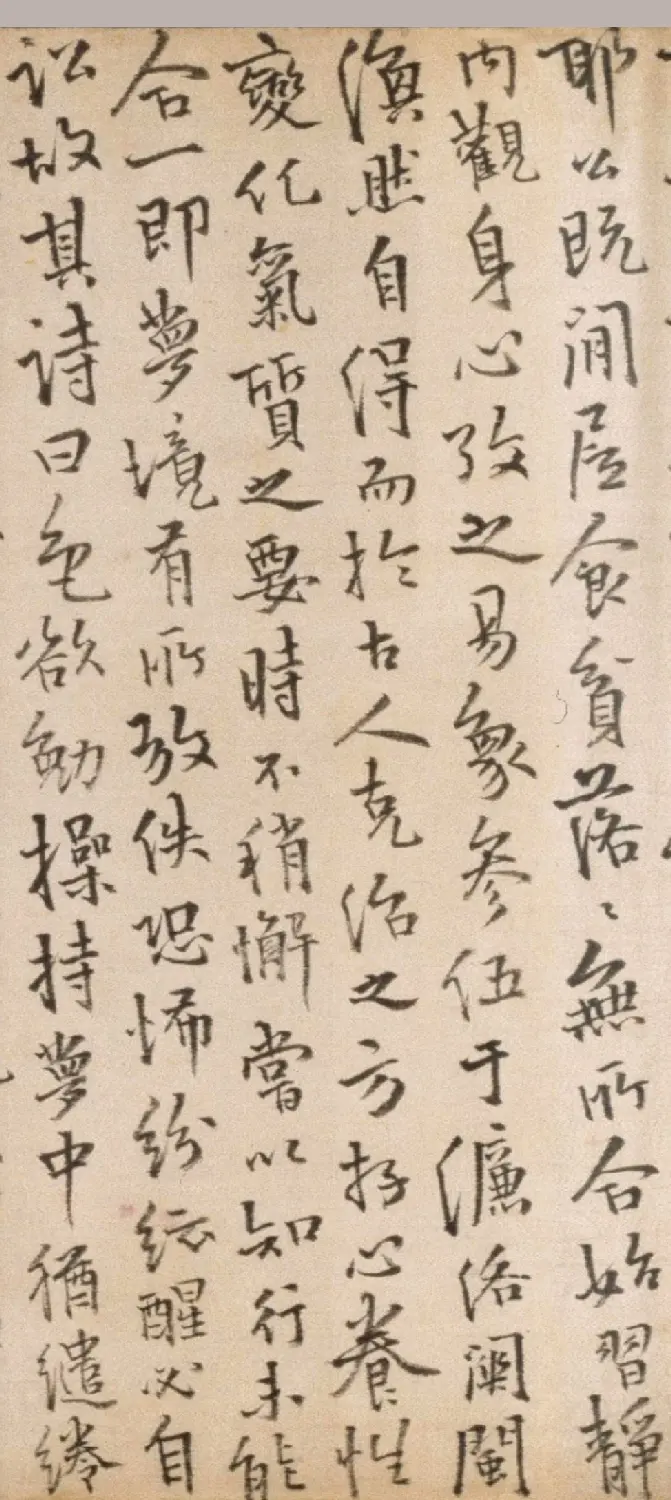 耶公既閒居食貧落〻無所合始習靜
內觀身心孜之易象參伍于濂洛関閩
渙然自得而於古人克治之方存心養性
變化氣質之要時不稍懈嘗以知行未能
合一即夢境有所放佚恐怖紛紜醒必自
訟故其詩曰色欲勉操持夢中猶繾綣